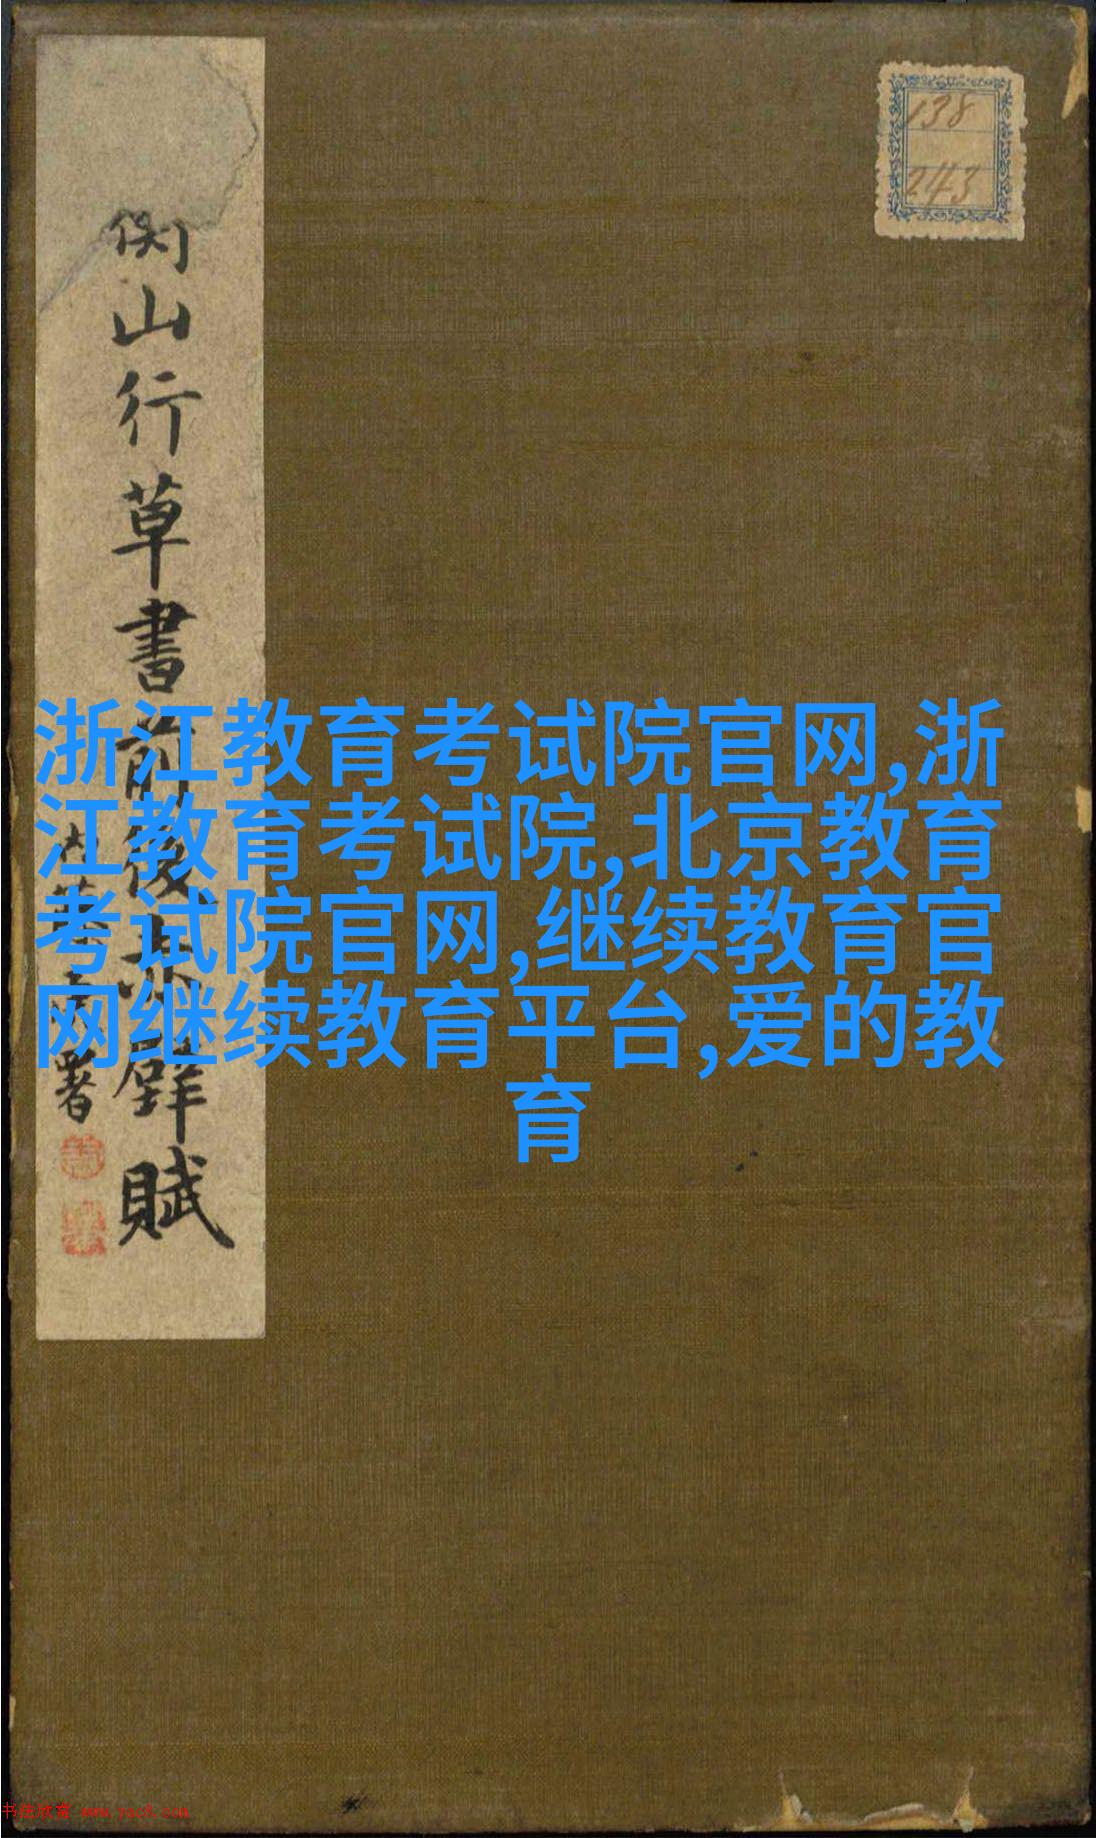 138
243
山行草書前後赤壁賦
署
浙江教育考试院官网,浙
江教育考试院,北京教育
考试院官网,继续教育官
网继续教育平台,爱的教
育
书法欣赏 www.yac8.com